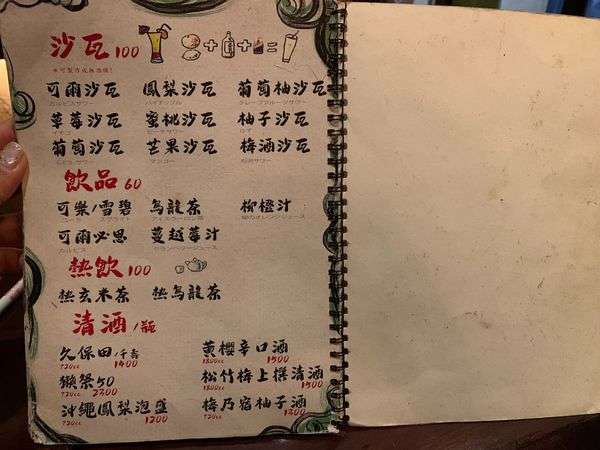 沙瓦 100
可爾沙瓦 鳳梨沙瓦 葡萄柚沙瓦
草莓沙瓦 蜜桃沙瓦 柚子沙瓦
葡萄沙瓦 芒果沙瓦 梅酒沙瓦
飲品 60
可樂/雪碧 烏龍茶 柳橙汁
可爾必思 蔓越莓汁
熱飲 100
熱玄米茶 熱烏龍茶
清酒 /瓶
久保田/千壽 黃櫻辛口酒
720cc 1400 1800cc 1500
獺祭50 松竹梅上撰清酒
720cc 2300 1800cc 1500
沖繩鳳梨泡盛 梅乃宿柚子酒
720cc 1200 720cc 1300